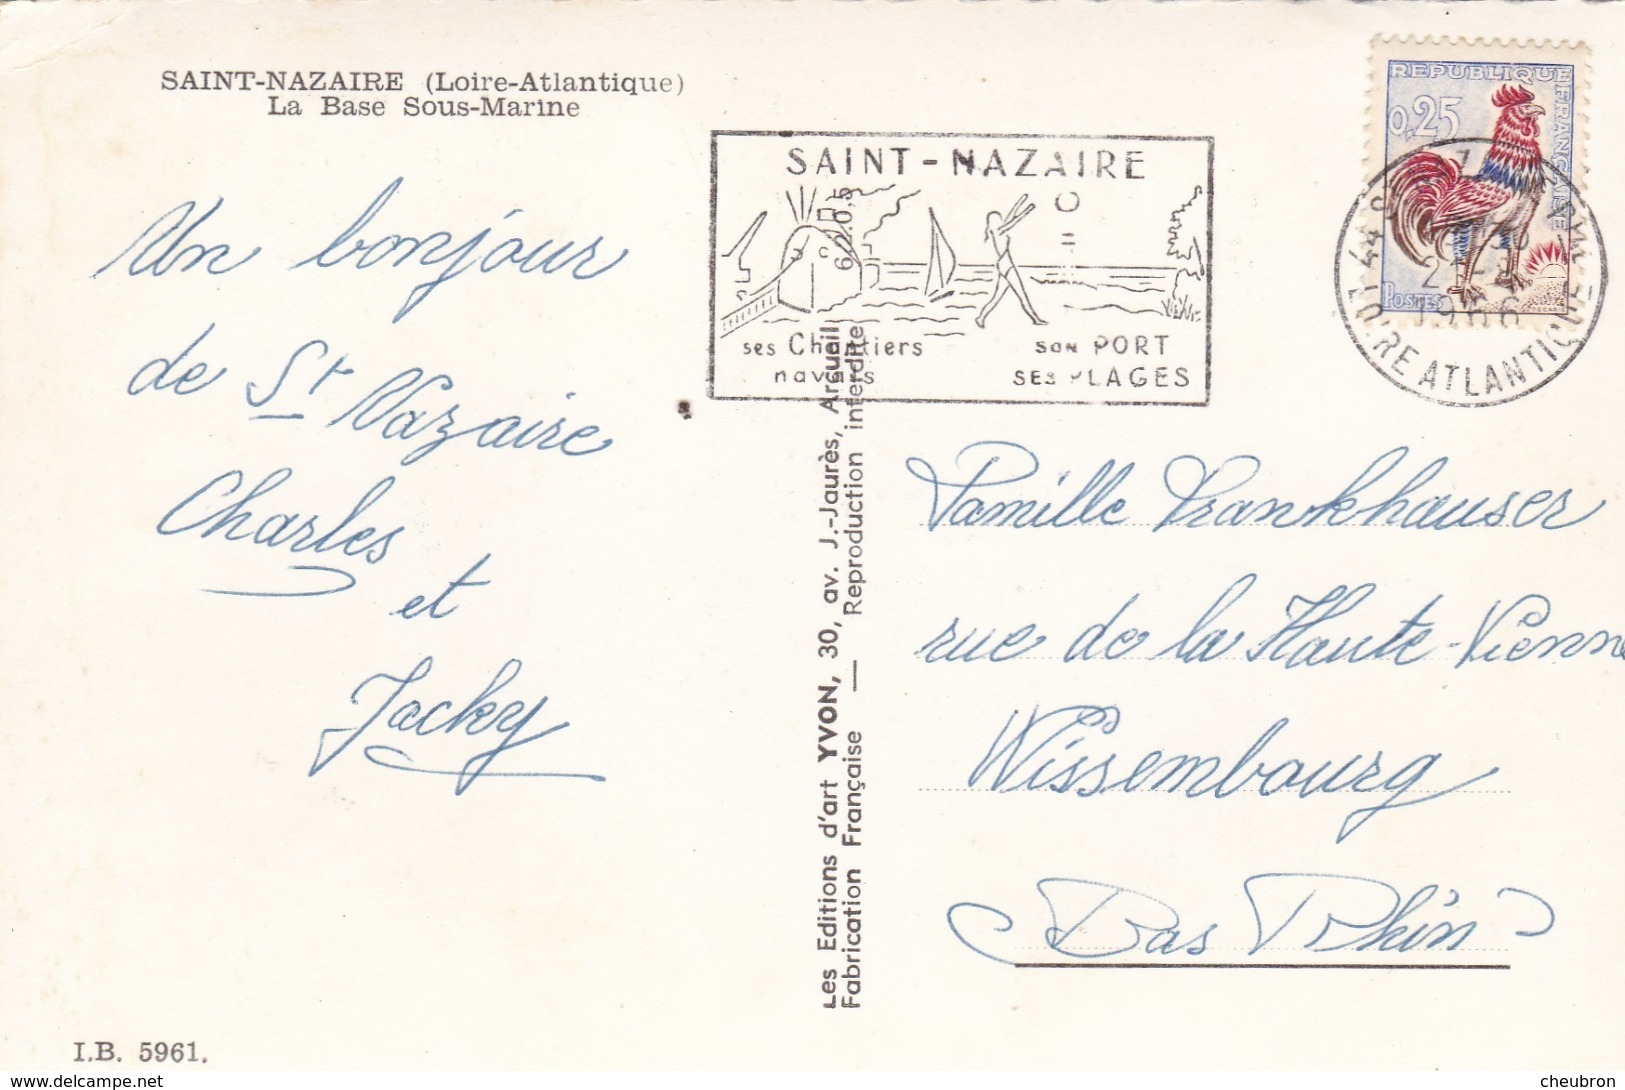 SAINT-NAZAIRE (Loire-Atlantique)
La Base Sous-Marine
Un bonjour
de St Nazaire
Charles
et
Jacky
I.B. 5961.
Les Editions d'art YVON, 30, av. J.-Jaurès, Arcueil
Fabrication Française — Reproduction interdite
62.0.5
SAINT-NAZAIRE
ses Chantiers
navals
son PORT
SES PLAGES
REPUBLIQUE FRANÇAISE
0,25
POSTES
44
1966
LOIRE ATLANTIQUE
Famille Frankhauser
rue de la Haute-Vienne
Wissembourg
(Bas Rhin)
www.delcampe.net
cheubron